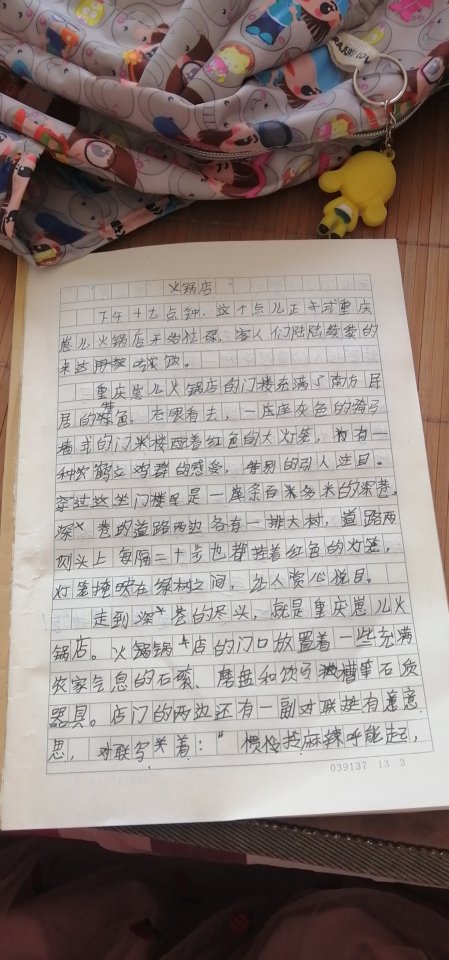 火锅店
下午十七点钟，这个点儿正是重庆
崽儿火锅店开始忙碌，客人们陆陆续续的
来这用餐吃饭。
重庆崽儿火锅店的门楼充满了南方民
居的特色，老眼看去，一座座灰色的
墙式的门楼配着红色的大灯笼，有一
种农鹤立鸡群的感受，特别的引人注目。
穿过这坐门楼是一座条百米多米的深巷，
深巷的道路两边各有一排大树，道路两
侧头上每隔二十步也都挂着红色的灯笼，
灯笼掩映在绿树之间，让人赏心悦目。
走到深巷的尽头，就是重庆崽儿火
锅店。火锅锅店的门口放置着一些充满
农家气息的石磙、磨盘和饮马槽等石质
器具。店门的两边还有一副对联挺有意
思，对联写着：“惯俭找麻辣呼能起，
039137 13 3